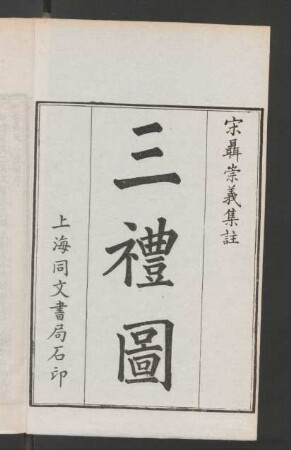 宋聶崇義集註
三禮圖
上海同文書局石印